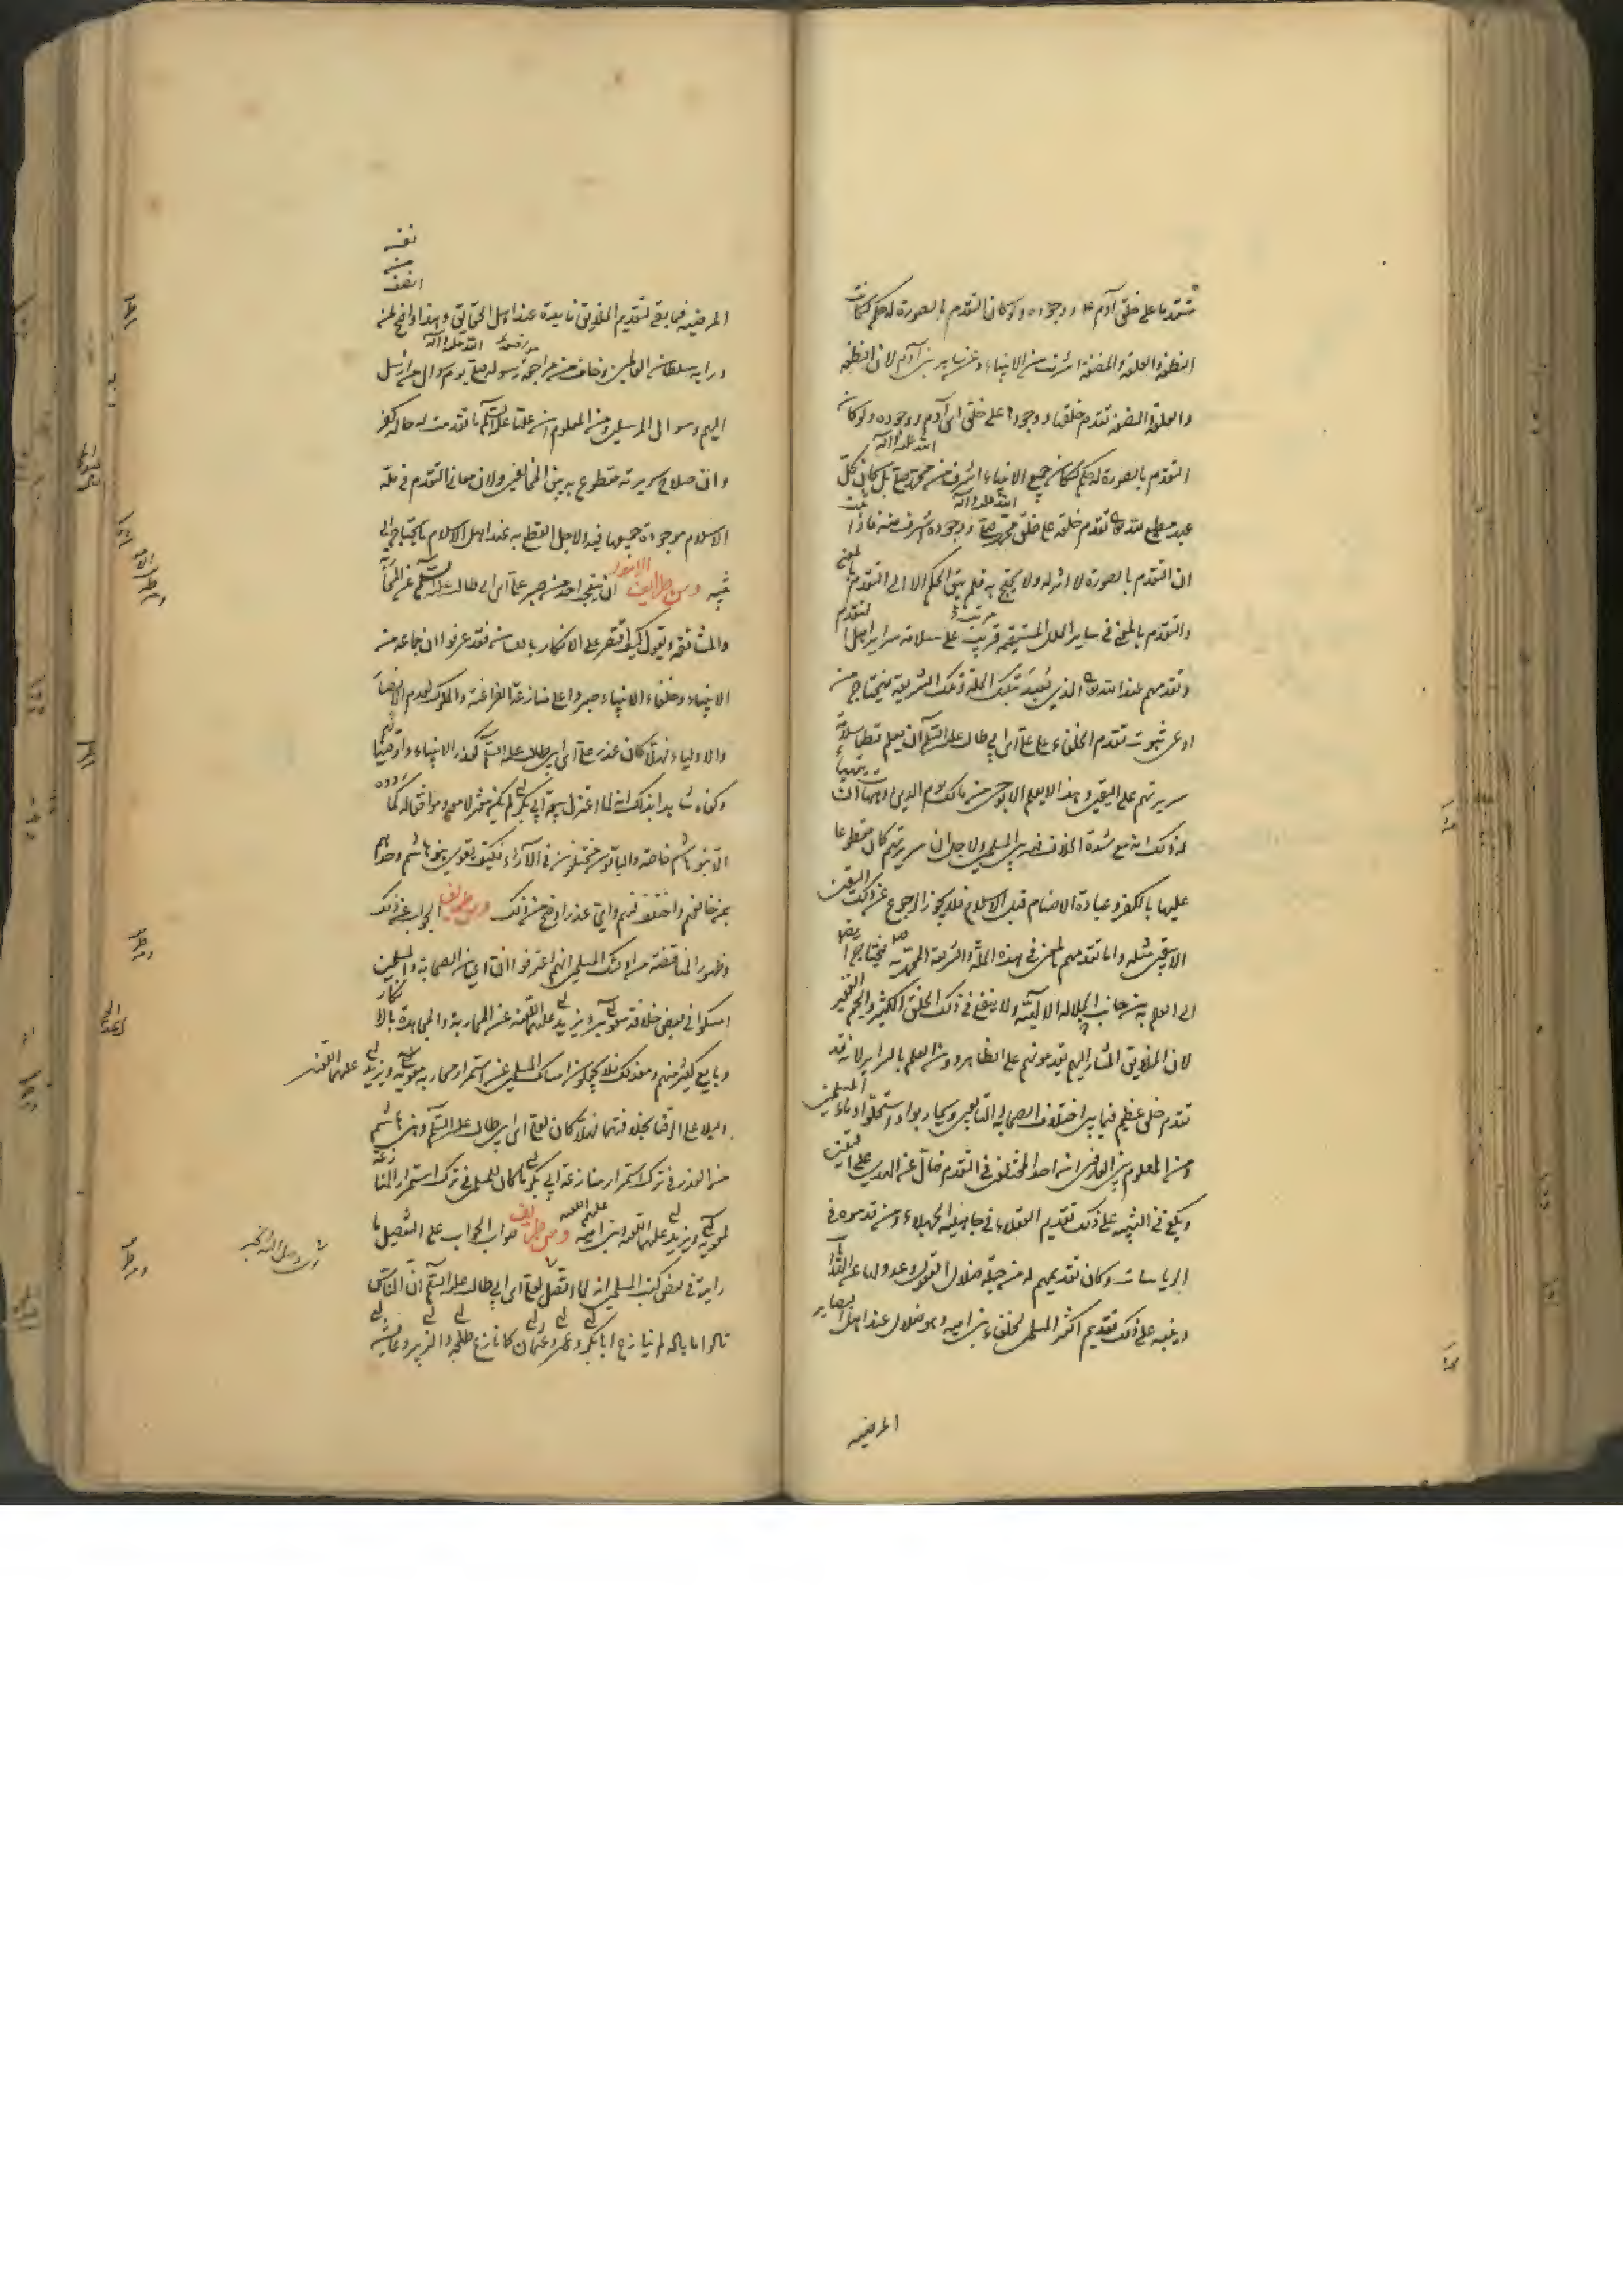 متقدما على خلق آدم ع ووجوده ولو كان التقدم بالصورة له حكم لكانت
النطفة والعلقة والمضغة اشرف من الانبياء وغر ساير بنى آدم لان النطفة
والعلقة والمضغة تقدم خلقها ووجودها على خلق ابن آدم ووجوده ولو كان
التقدم بالصورة له حكم لكان جميع الانبياء اشرف من محمد صلى الله عليه وآله بل كان كل
عبد مطيع لله تعالى تقدم خلقه على خلق محمد صلى الله عليه وآله ووجوده اشرف منه فاذا
ان التقدم بالصورة لا اثر له ولا يحتج به فلم يبق الحكم الا الى التقدم بالمعنى
والتقدم بالمعنى فى ساير الملل المستقيمة مرتب على سلامة سراير اهل التقدم
وتقدمهم عند الله تعالى الذى يُعبَد بتلك الملة وتلك الشريعة فيحتاج من
ادعى ثبوت تقدم الخلفاء على على ابن ابى طالب عليه السلم ان يعلم قطعا سلامة
سريرتهم على اليقين وهذا لا يعلم الا بوحى من مالك يوم الدين
له ذلك انه مع شدة الخلاف فيه بين المسلمين ولاجل ان سريرتهم كان مقطوعا
عليها بالكفر وعبادة الاصنام قبل الاسلام فلا يجوز الرجوع عن ذلك اليقين
الا بيقين مثله واما تقدمهم بالمعنى فى هذه الملة والشريعة المحمدية فيحتاج ايضا
الى العلم به من جانب الجلالة الالهية ولا ينفع فى ذلك الخلق الكثير والجم الغفير
لان الخلايق المشار اليهم يقدمونهم على الظاهر دون العلم بالسراير لانه قد
تقدم خلق عظيم فيما بين اختلاف الصحابة والتابعين وتحاربوا واستحلوا دماء المسلمين
ومن المعلوم بين العارفين ان احد المختلفين فى التقدم ضال عن الهدى على اليقين
ويكفى فى التنبيه على ذلك تقديم العقلاء فى جاهلية الجهلاء من قدموه فى
الرياسات وكان تقديمهم له من جملة ضلال العقول وعدولها عن
وينبه على ذلك تقديم اكثر المسلمين لخلفاء بنى امية وهو ضلال عند اهل البصاير
المرضية
انصف
من
نفسه
المرضية فما بقى لتقديم الخلايق فايدة عند اهل الحقايق وهذا واضح لمن
ورايه سلطان العالمين وخاف من مراجعة رسوله صلى الله عليه وآله يوم سوال من ارسل
اليهم وسوال المرسلين ومن المعلوم ان عليا عليه السلم ما تقدمت له حالة كفر
وان صلاح سريرته مقطوع به بين المخالفين ولان معانى التقدم فى ملة
الاسلام موجودة جميعها فيه لاجل القطع به عند اهل الاسلام ما يحتاج الى
تنبيه ومن طرايف الامور ان يتعجب احد من صبر على ابن ابى طالب عليه السلم عن المحاربة
والمشاققة ويقول كيف اقتصر على الانكار باللسان فقد عرفوا ان جماعة من
الانبياء وخلفاء الانبياء صبروا على منازعة الفراعنة والملوك لعدم الانصار
والاولياء فهلا كان عذر على ابن ابى طالب عليه السلم كعذر الانبياء
وكفاه شاهدا بذلك انه لما اعتزل بيعة ابى بكر لم يكن
الا بنو هاشم خاصة والباقون مختلفون فى الآراء فكيف يقوى بنو هاشم وحدهم
بمن خالفهم واختلف فيهم واى عذر اوضح من ذلك ومن طريف الجواب عن ذلك
وظهور المناقضة من اولئك المسلمين انهم اعترفوا ان اعيان الصحابة والمسلمين
امسكوا فى بعض خلافة معوية ويزيد عليهما اللعنة عن المحاربة والمجاهدة بالانكار
وبايع كثير منهم ومع ذلك فلا يجعلون امساك المسلمين عن استمرار محاربة معوية ويزيد عليهما اللعنة
دليلا على الرضا بخلافتهما فهلا كان لعلى ابن ابى طالب عليه السلم وبنى هاشم
من العذر فى ترك استمرار منازعة ابى بكر ما كان للمسلمين فى ترك استمرار المنازعة
لمعوية ويزيد عليهما اللعنة وبنى امية عليهم اللعنة ومن طريف صواب الجواب على التفصيل ما
رايته فى بعض كتب المسلمين انه لما اتصل لعلى ابن ابى طالب عليه السلم ان الناس
قالوا ما باله لم ينازع ابا بكر وعمر وعثمان كما نازع طلحة والزبير وعايشة